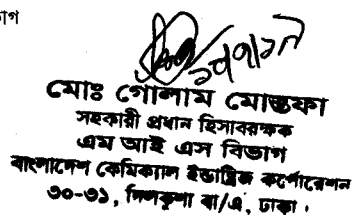 গ
মোঃ গোলাম মোস্তফা
সহকারী প্রধান হিসাবরক্ষক
এম আই এস বিভাগ
বাংলাদেশ কেমিক্যাল ইন্ডাষ্ট্রিজ কর্পোরেশন
৩০-৩১, দিলকুশা বা/এ, ঢাকা।